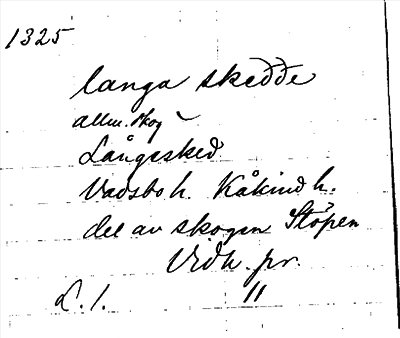 1325
langa skeððe
allm. skog
Långesked
Vadsbo h. Kåkind h.
del av skogen Stöpen
Vidh. pr.
L. 1. 11